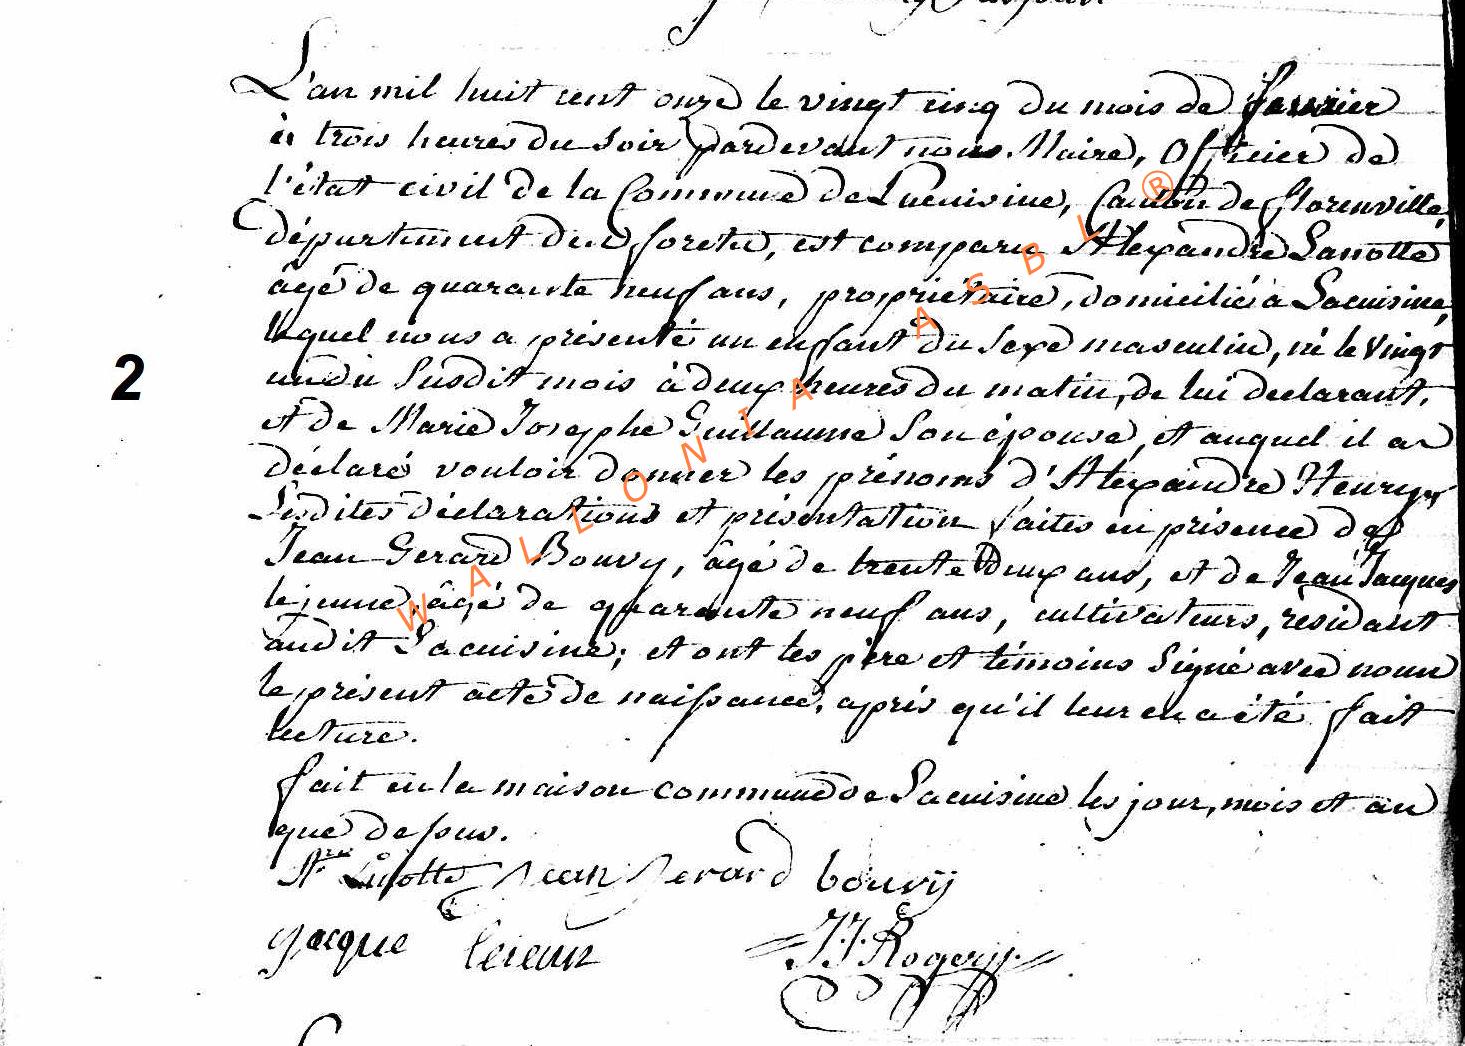 L'an mil huit cent onze le vingt cinq du mois de fevrier
à trois heures du soir pardevant nous Maire, Officier de
l'état civil de la Commune de Lacuisine, Canton de florenville,
département des forets, est comparu Alexandre Lanotte
âgé de quarante neuf ans, propriétaire, domicilié a Lacuisine,
lequel nous a présenté un enfant du Sexe masculin, né le vingt
un du susdit mois à deux heures du matin, de lui declarant,
et de Marie Josephe Guillaume Son épouse, et auquel il a
déclaré vouloir donner les prénoms d'Alexandre Henry,
Lesdites déclarations et présentation faites en présence de
Jean Gerard Bouvy, âgé de trente deux ans, et de Jean Jacques
lejeune, âgé de quarante neuf ans, cultivateurs, residant
audit Lacuisine; et ont les père et témoins Signé avec nous
le présent acte de naissance, après qu'il leur en a été fait
lecture.
fait en la maison commune de Lacuisine les jour, mois et an
que dessus.
Lanotte Jean Gerard bouvij
Jacque lejeun
J.J. Rogery
2
WALLONIA ASBL ®